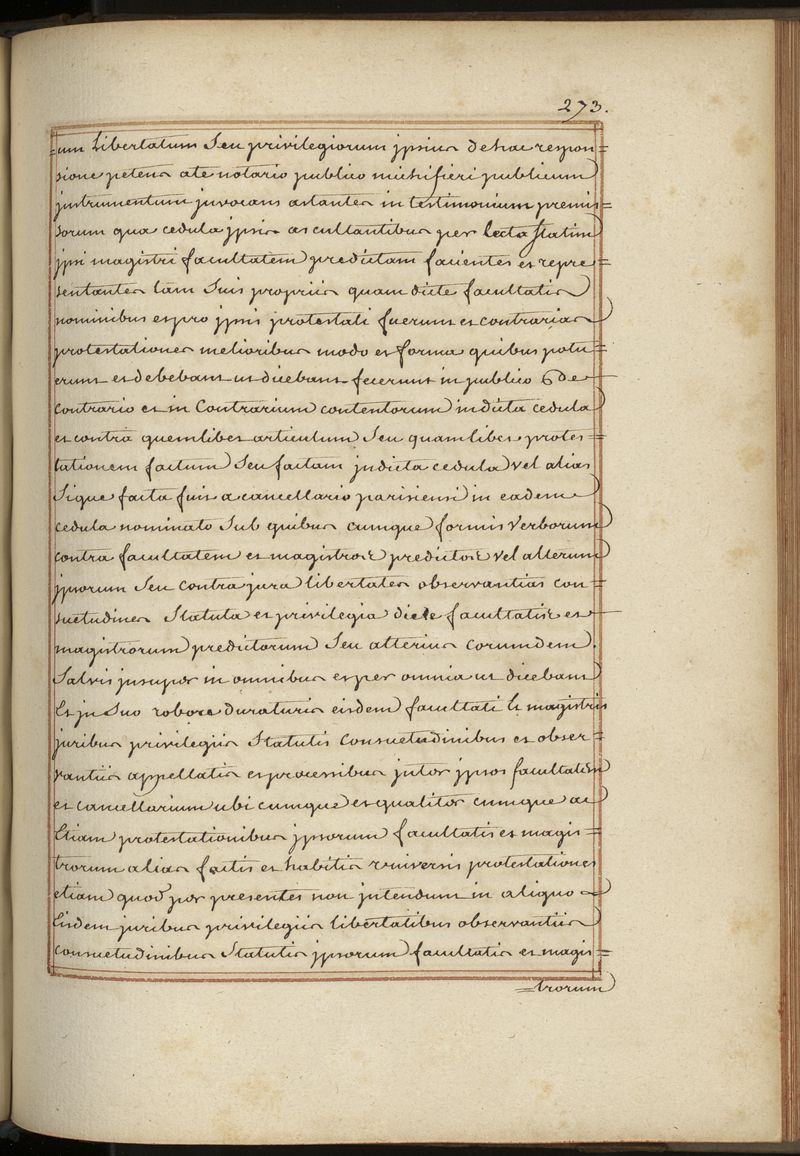 273.
=um libertatum Seu privilegiorum jpsius de hac respon=
sione petens a te notario publico michi fieri publicum
jnstrumentum juvocans astantes in testimonium premis=
sorum qua cedula jpsis as cultantibus per lecta statim
jpsi magistri facultatem predictam facientes et repre=
sentantes tam Suis propriis quam dicte facultatis
nominibus et pro jpsis protestati fuerunt et contrarias
protestationes melioribus modo et forma quibus potu=
erunt et debebant ut dicebant fecerunt in publico 6 de
contrario et in Contrarium contentorum in dicta cedula
et contra quemlibet articulum Seu quamlibet protes=
tationem factum Seu factam jn dicta cedula vel alias
Sique facta fuit a cancellario parisiensi in eadem
cedula nominato Sub quibus cumque formis verborum
contra facultatem et magistros predictos vel alterum
jpsorum Seu contra jura libertates observantias con=
suetudines Statuta et privilegia dicte facultatis et
magistrorum predictorum Seu alterius eorumdem.
Salvis jnsuper in omnibus et per omnia ut dicebant
Et jn Suo robore duraturis eisdem facultati et magistris
juribus privilegiis Statutis Consuetudinibus et obser=
vantiis appellatis et processibus jnter jpsos facultatem
et cancellarium ubi cumque et qualiter cumque ac
Etiam protestationibus jpsorum facultatis et magis=
trorum alias factis et habitis universis protestationes
etiam quod per presentes non jntendunt in aliquo
Eisdem juribus privilegiis libertatibus observantiis
consuetudinibus Statutis jpsorum facultatis et magis=
=trorum